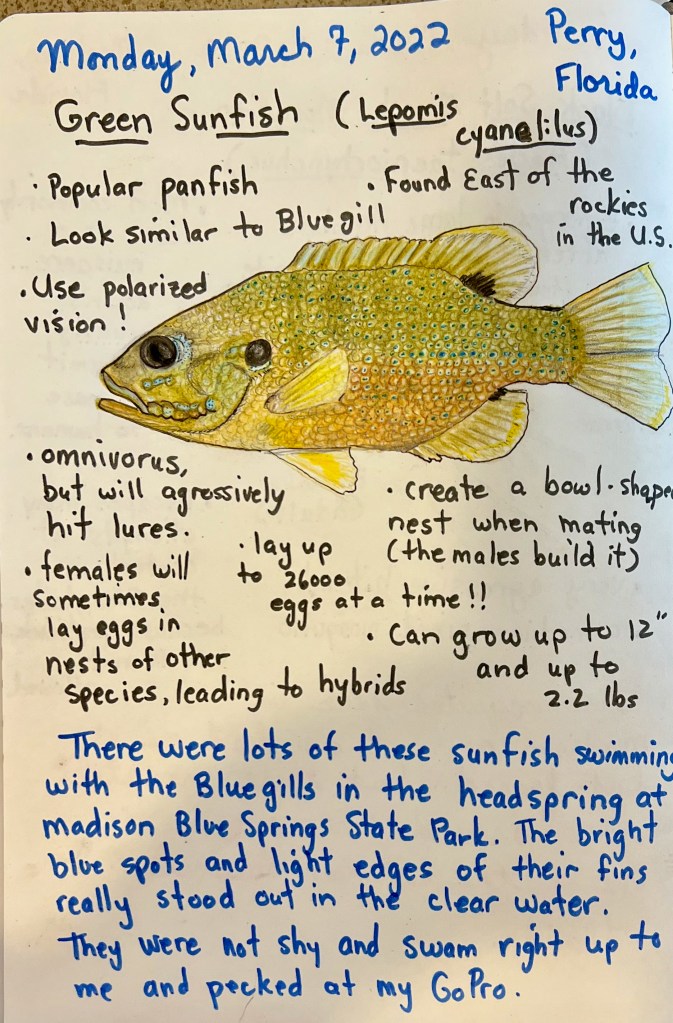 Monday, March 7, 2022
Perry,
Florida
Green Sunfish (Lepomis
cyanelilus)
· Popular panfish
· Look similar to Bluegill
· Found East of the
rockies
in the U.S.
· Use polarized
vision!
· omnivorus,
but will agressively
hit lures.
· create a bowl-shape
nest when mating
(the males build it)
· females will
sometimes
lay eggs in
nests of other
species, leading to hybrids
· lay up
to 26000
eggs at a time!!
· Can grow up to 12"
and up to
2.2 lbs
There were lots of these sunfish swimming
with the Bluegills in the headspring at
madison Blue Springs State Park. The bright
blue spots and light edges of their fins
really stood out in the clear water.
They were not shy and swam right up to
me and pecked at my GoPro.